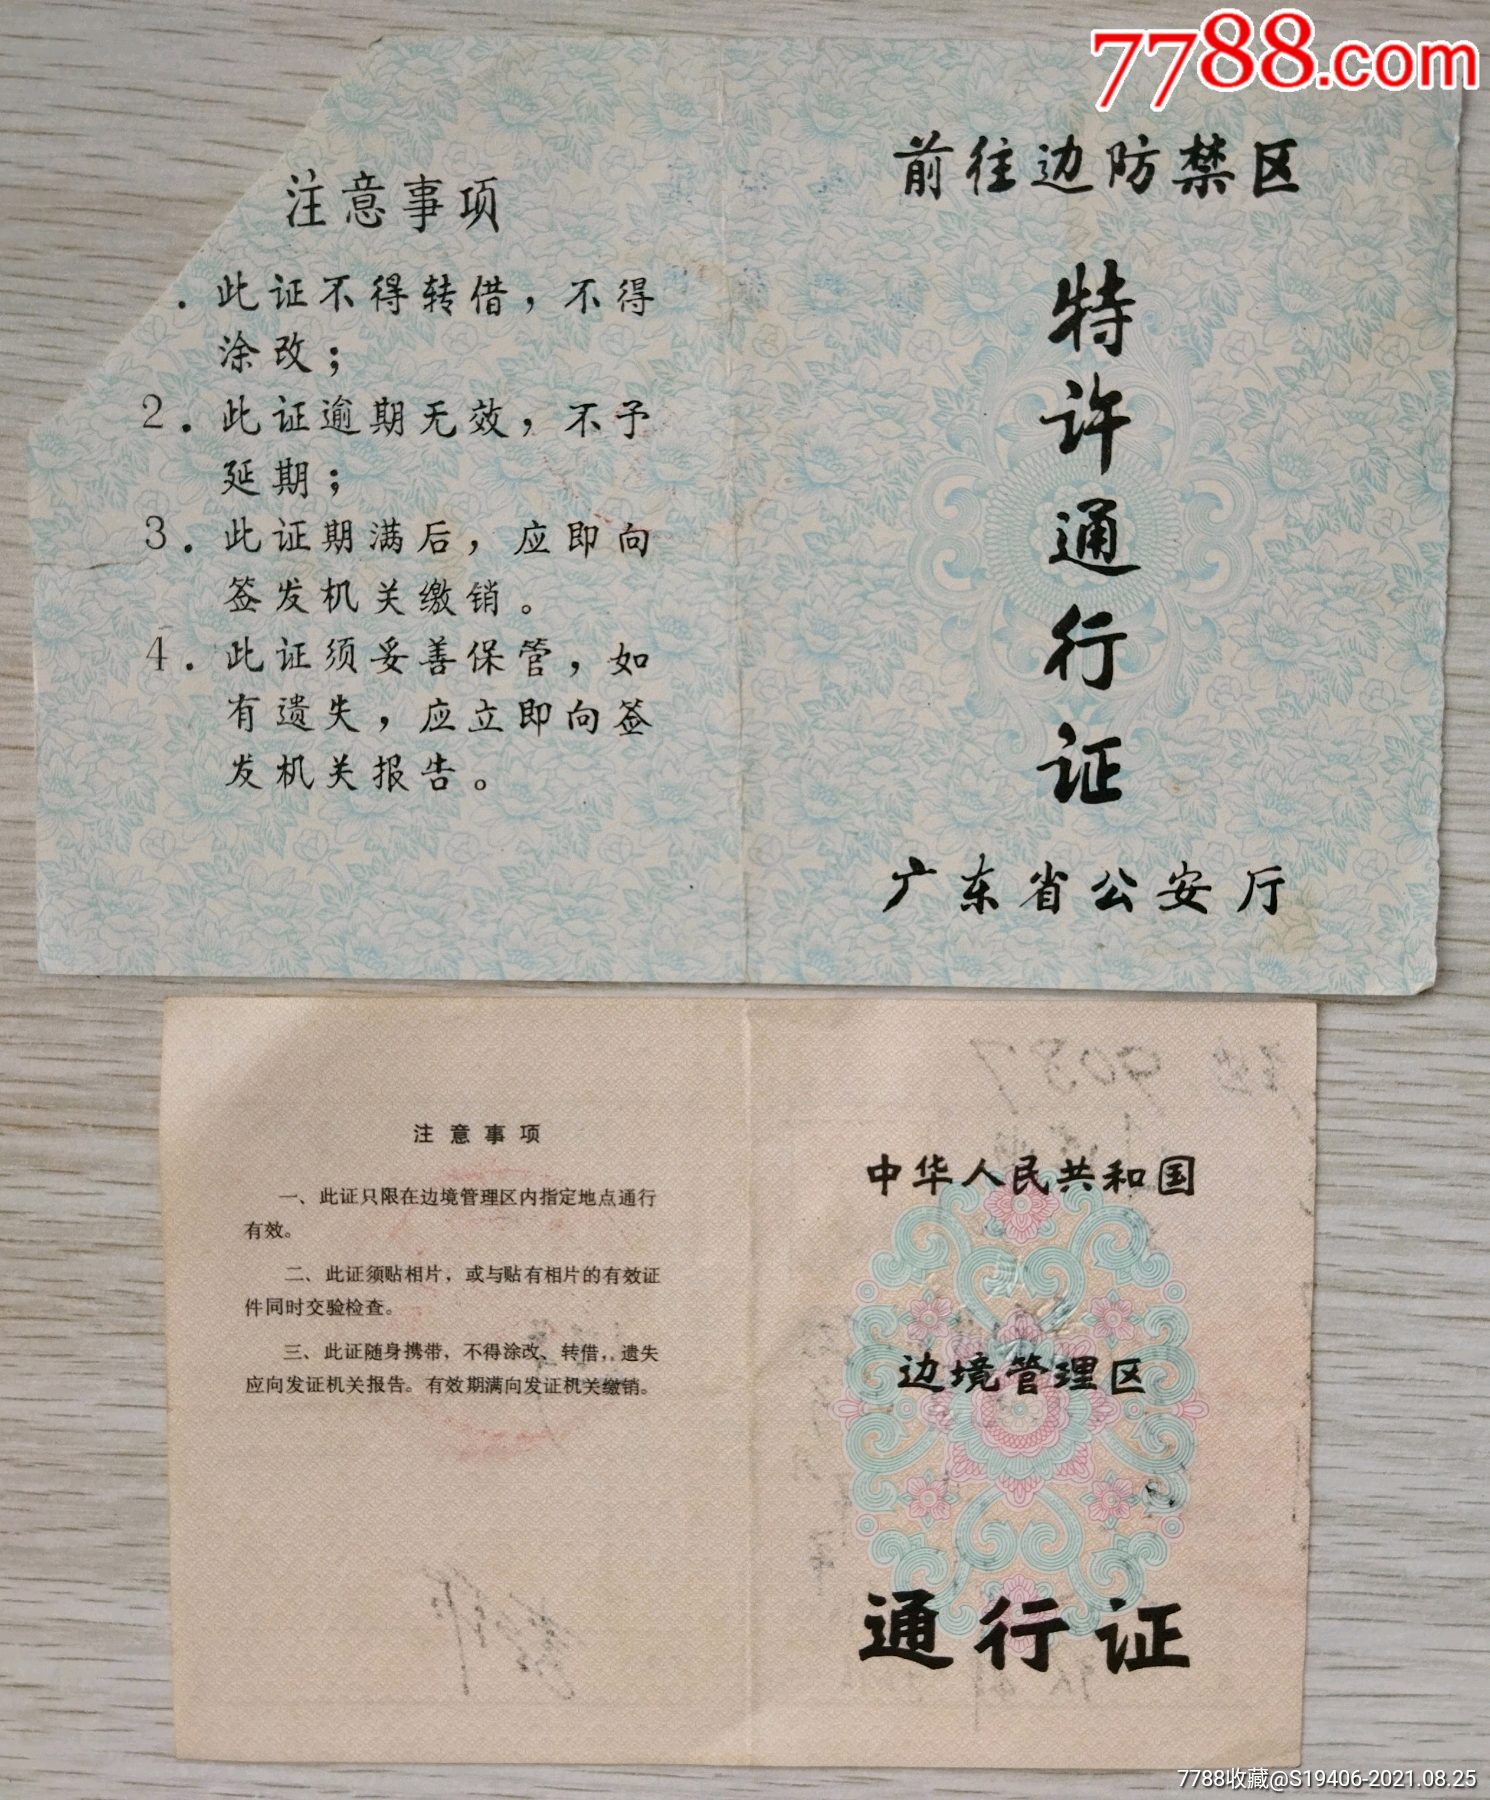 7788.com
前往边防禁区
特
许
通
行
证
广东省公安厅
注意事项
. 此证不得转借，不得
涂改；
2. 此证逾期无效，不予
延期；
3. 此证期满后，应即向
签发机关缴销。
4. 此证须妥善保管，如
有遗失，应立即向签
发机关报告。
中华人民共和国
边境管理区
通行证
注意事项
一、此证只限在边境管理区内指定地点通行
有效。
二、此证须贴相片，或与贴有相片的有效证
件同时交验检查。
三、此证随身携带，不得涂改、转借，遗失
应向发证机关报告。有效期满向发证机关缴销。
7788收藏@S19406-2021.08.25